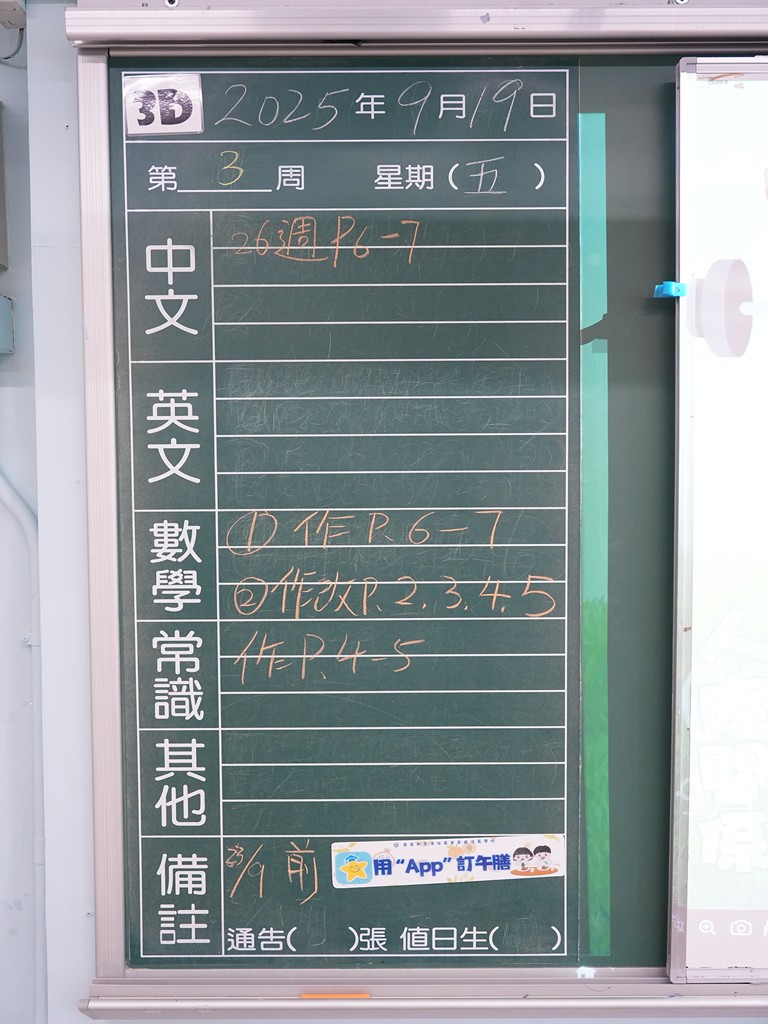 3D 2025年9月19日
第3周 星期(五)
中文
26週 P.6-7
英文
數學
① 作 P.6-7
② 作改 P.2.3.4.5
常識
作 P.4-5
其他
備註
23/9 前
用“App”訂午膳
通告( )張 值日生( )
人
醫
療